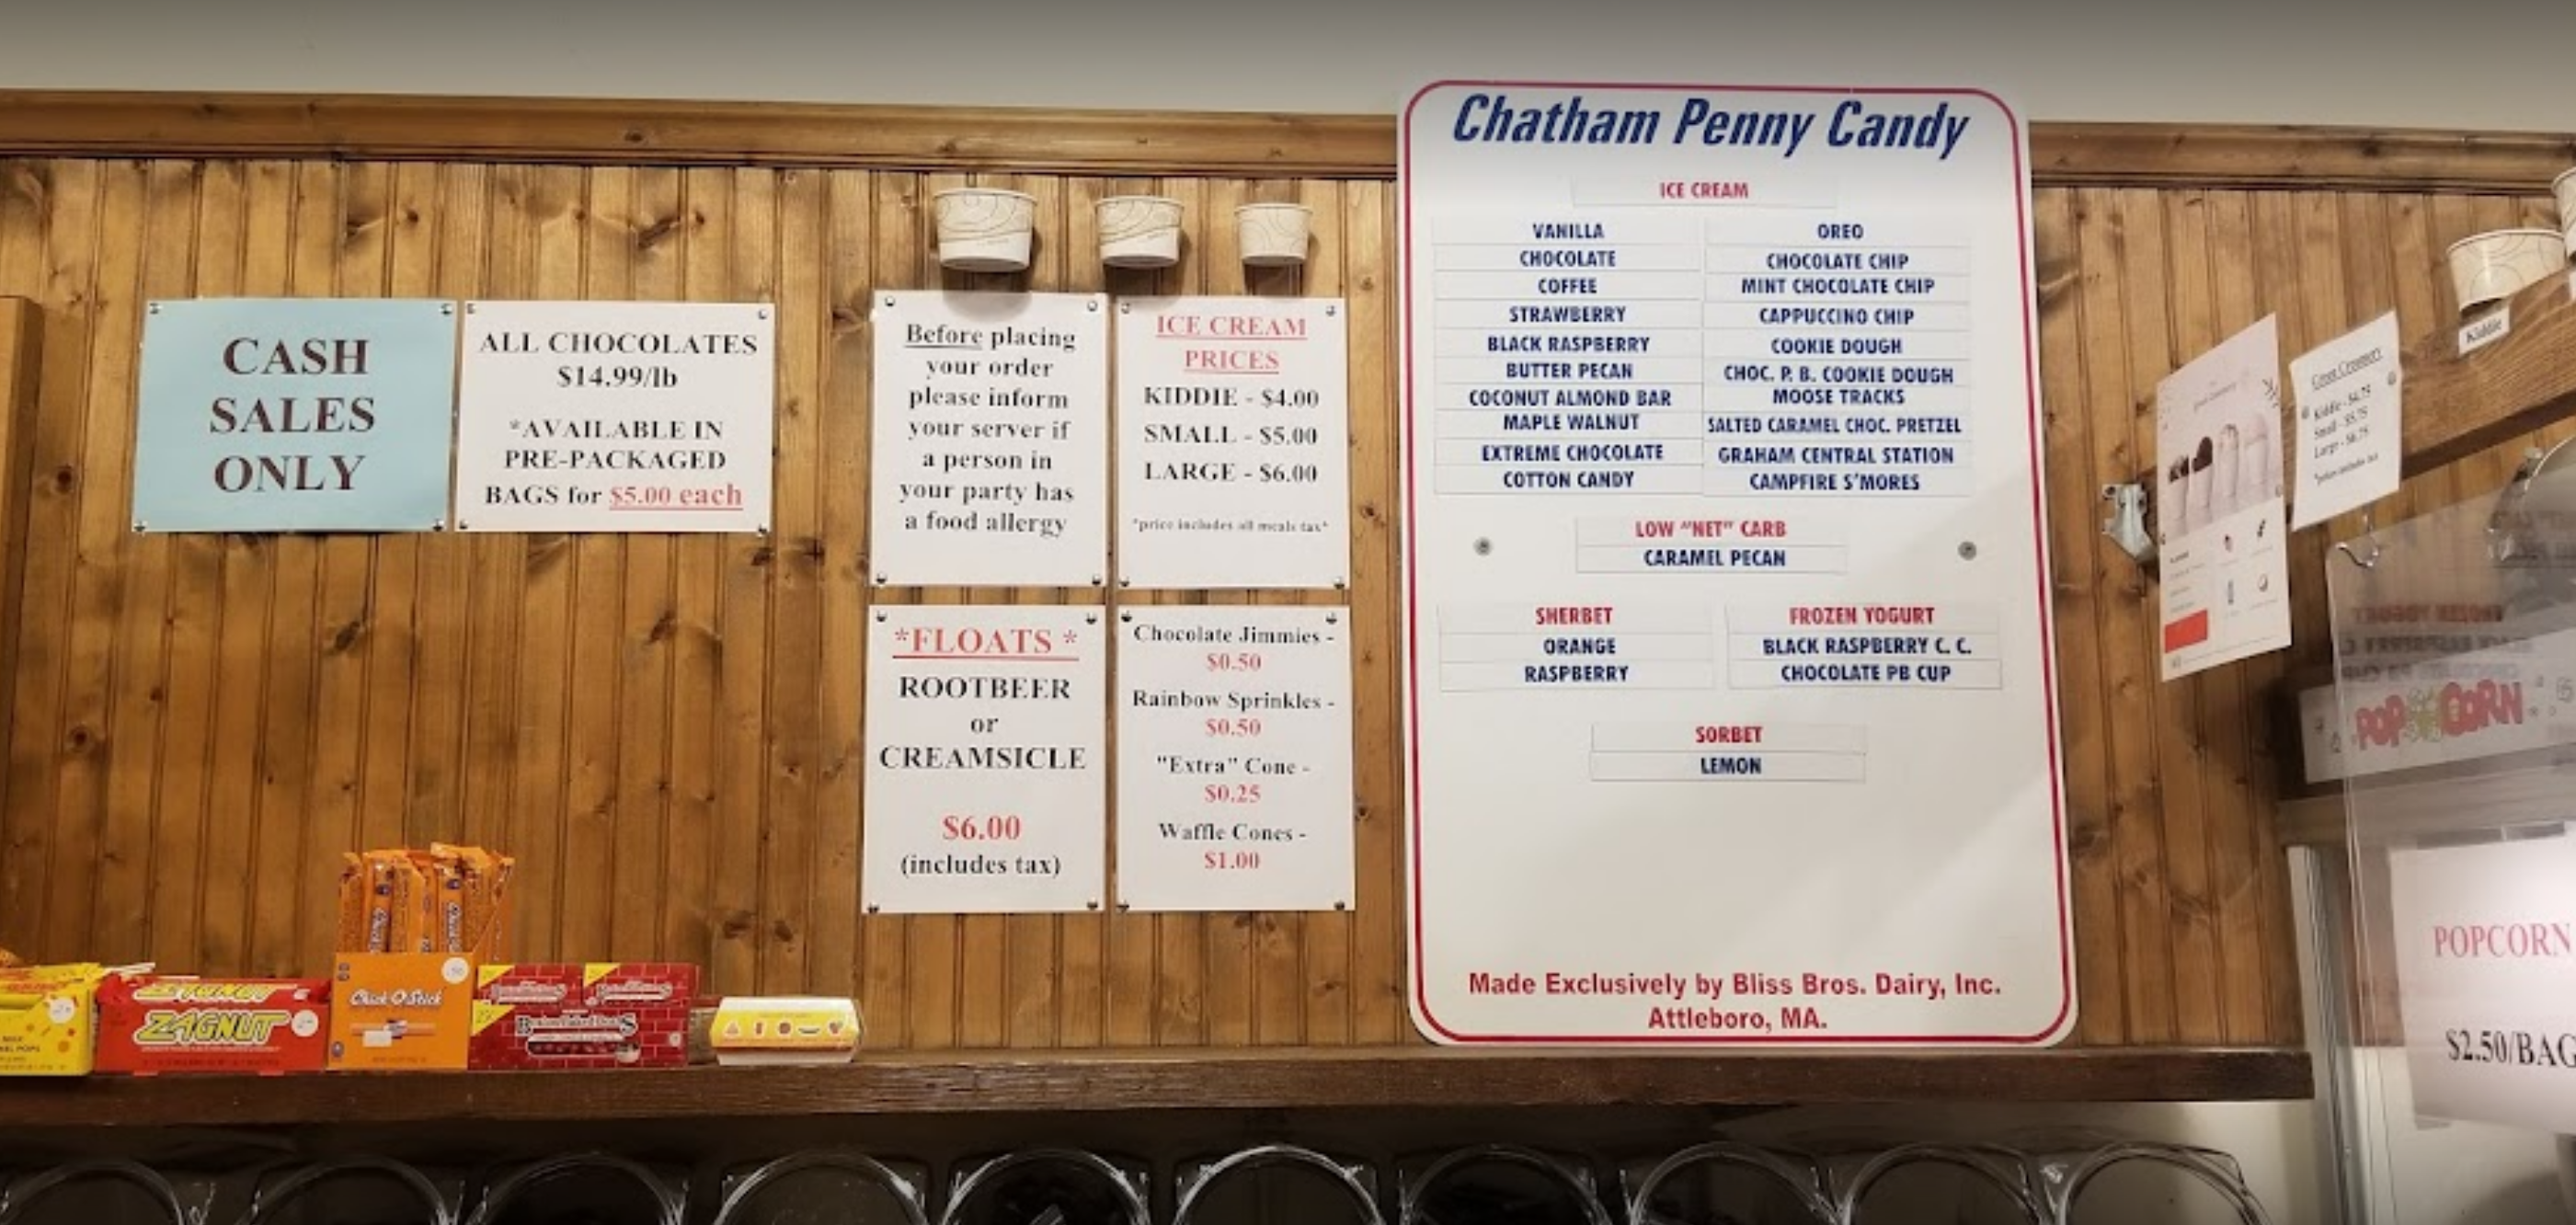 CASH
SALES
ONLY
ALL CHOCOLATES
$14.99/lb
*AVAILABLE IN
PRE-PACKAGED
BAGS for $5.00 each
Before placing
your order
please inform
your server if
a person in
your party has
a food allergy
ICE CREAM
PRICES
KIDDIE - $4.00
SMALL - $5.00
LARGE - $6.00
*price includes all meals tax*
*FLOATS *
ROOTBEER
or
CREAMSICLE
$6.00
(includes tax)
Chocolate Jimmies -
$0.50
Rainbow Sprinkles -
$0.50
"Extra" Cone -
$0.25
Waffle Cones -
$1.00
Chatham Penny Candy
ICE CREAM
VANILLA
CHOCOLATE
COFFEE
STRAWBERRY
BLACK RASPBERRY
BUTTER PECAN
COCONUT ALMOND BAR
MAPLE WALNUT
EXTREME CHOCOLATE
COTTON CANDY
OREO
CHOCOLATE CHIP
MINT CHOCOLATE CHIP
CAPPUCCINO CHIP
COOKIE DOUGH
CHOC. P. B. COOKIE DOUGH
MOOSE TRACKS
SALTED CARAMEL CHOC. PRETZEL
GRAHAM CENTRAL STATION
CAMPFIRE S'MORES
LOW "NET" CARB
CARAMEL PECAN
SHERBET
ORANGE
RASPBERRY
FROZEN YOGURT
BLACK RASPBERRY C. C.
CHOCOLATE PB CUP
SORBET
LEMON
Made Exclusively by Bliss Bros. Dairy, Inc.
Attleboro, MA.
Kiddie
Kiddie - $4.75
Small - $5.75
Large - $6.75
POPCORN
POPCORN
$2.50/BAG
ZAGNUT
Chick-O-Stick